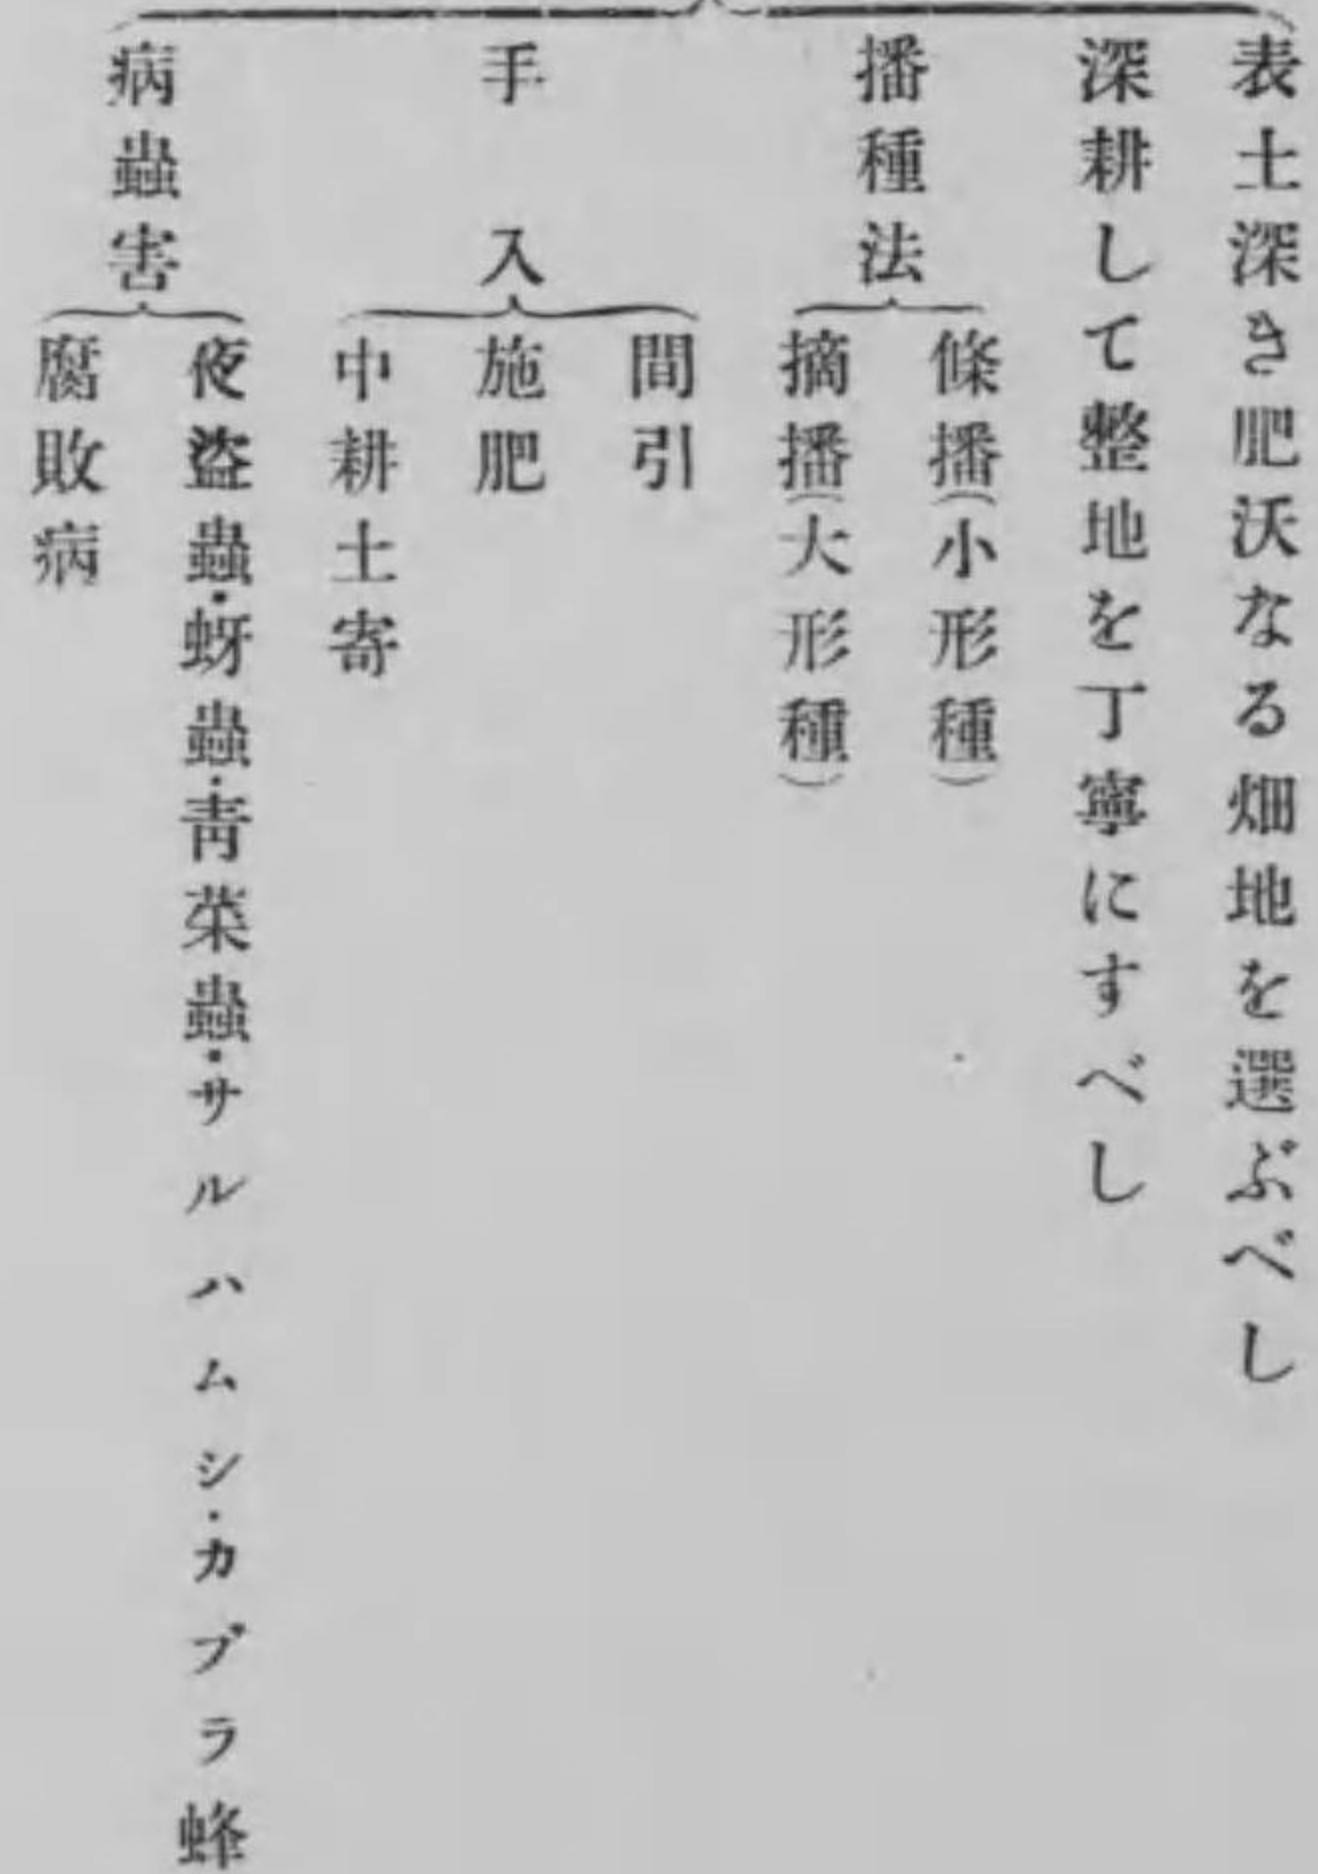 表土深き肥沃なる畑地を選ぶべし
深耕して整地を丁寧にすべし
播種法
條播(小形種)
摘播(大形種)
手入
間引
施肥
中耕土寄
病蟲害
夜盜蟲・蚜蟲・靑菜蟲・サルハムシ・カブラ蜂
腐敗病